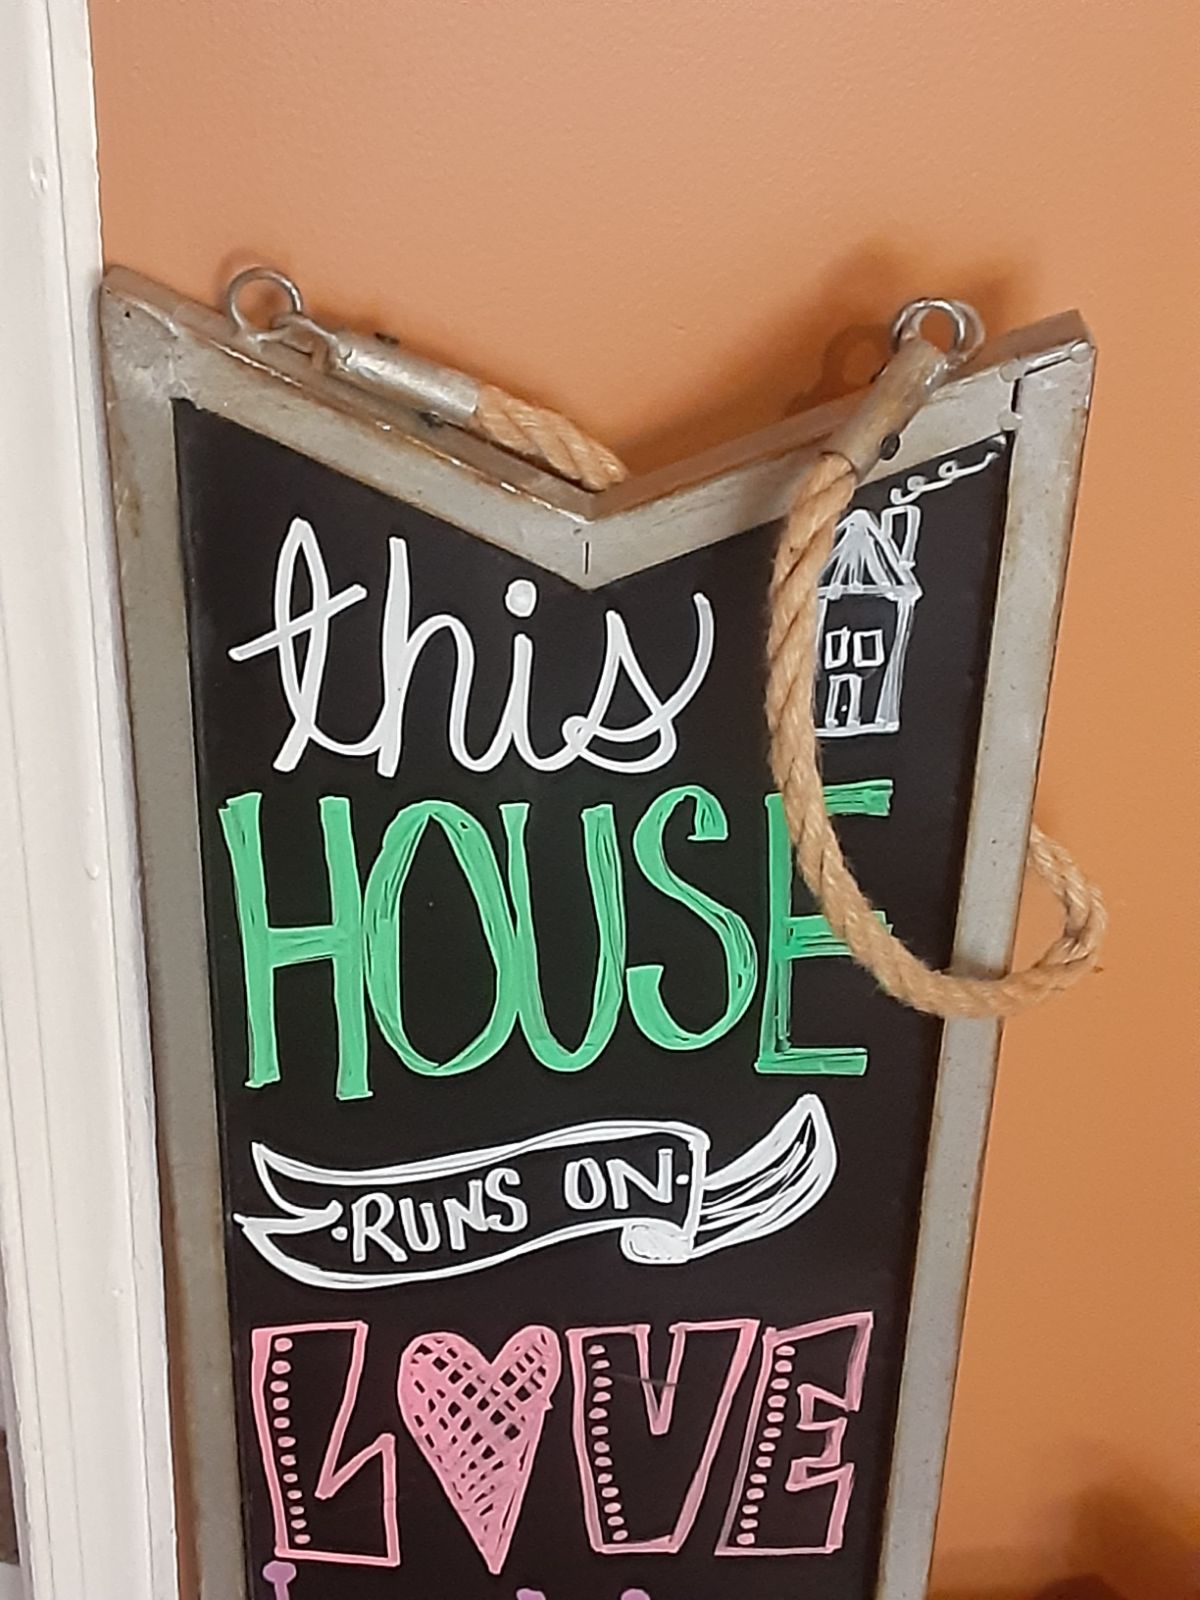 this
HOUSE
·RUNS ON·
LOVE